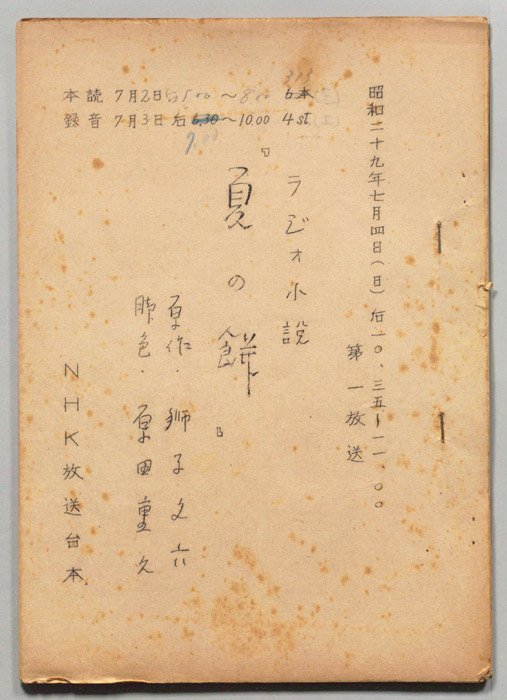 本読 7月2日 5500〜800 6本 (金)
313
録音 7月3日 后 6.30〜10.00 4st. (土)
7.00
昭和二十九年七月四日(日)后一〇、三五〜一一、〇〇
第一放送
ラジオ小説
『夏の餅』
原作・獅子文六
脚色・原田重久
NHK放送台本